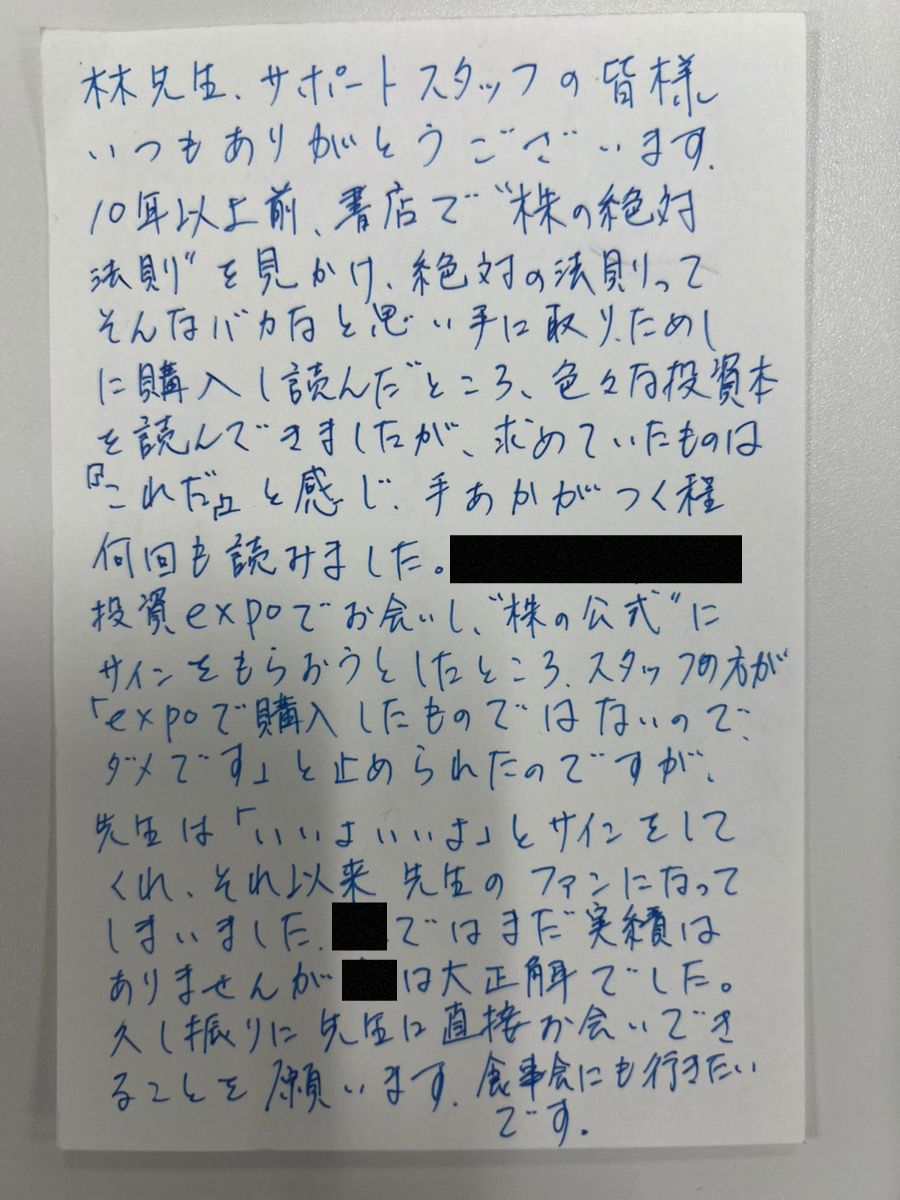 林先生、サポートスタッフの皆様
いつもありがとうございます.
10年以上前、書店で“株の絶対
法則”を見かけ、絶対の法則って
そんなバカなと思い手に取り、ためし
に購入し読んだところ、色々な投資本
を読んできましたが、求めていたものは
『これだ』と感じ、手あかがつく程
何回も読みました。
投資expoでお会いし、“株の公式”に
サインをもらおうとしたところ、スタッフの方が
「expoで購入したものではないので、
ダメです」と止められたのですが、
先生は「いいよいいよ」とサインをして
くれ、それ以来 先生のファンになって
しまいました、 ではまだ実績は
ありませんが は大正解でした。
久し振りに先生に直接お会いでき
ることを願います. 食事会にも行きたい
です.